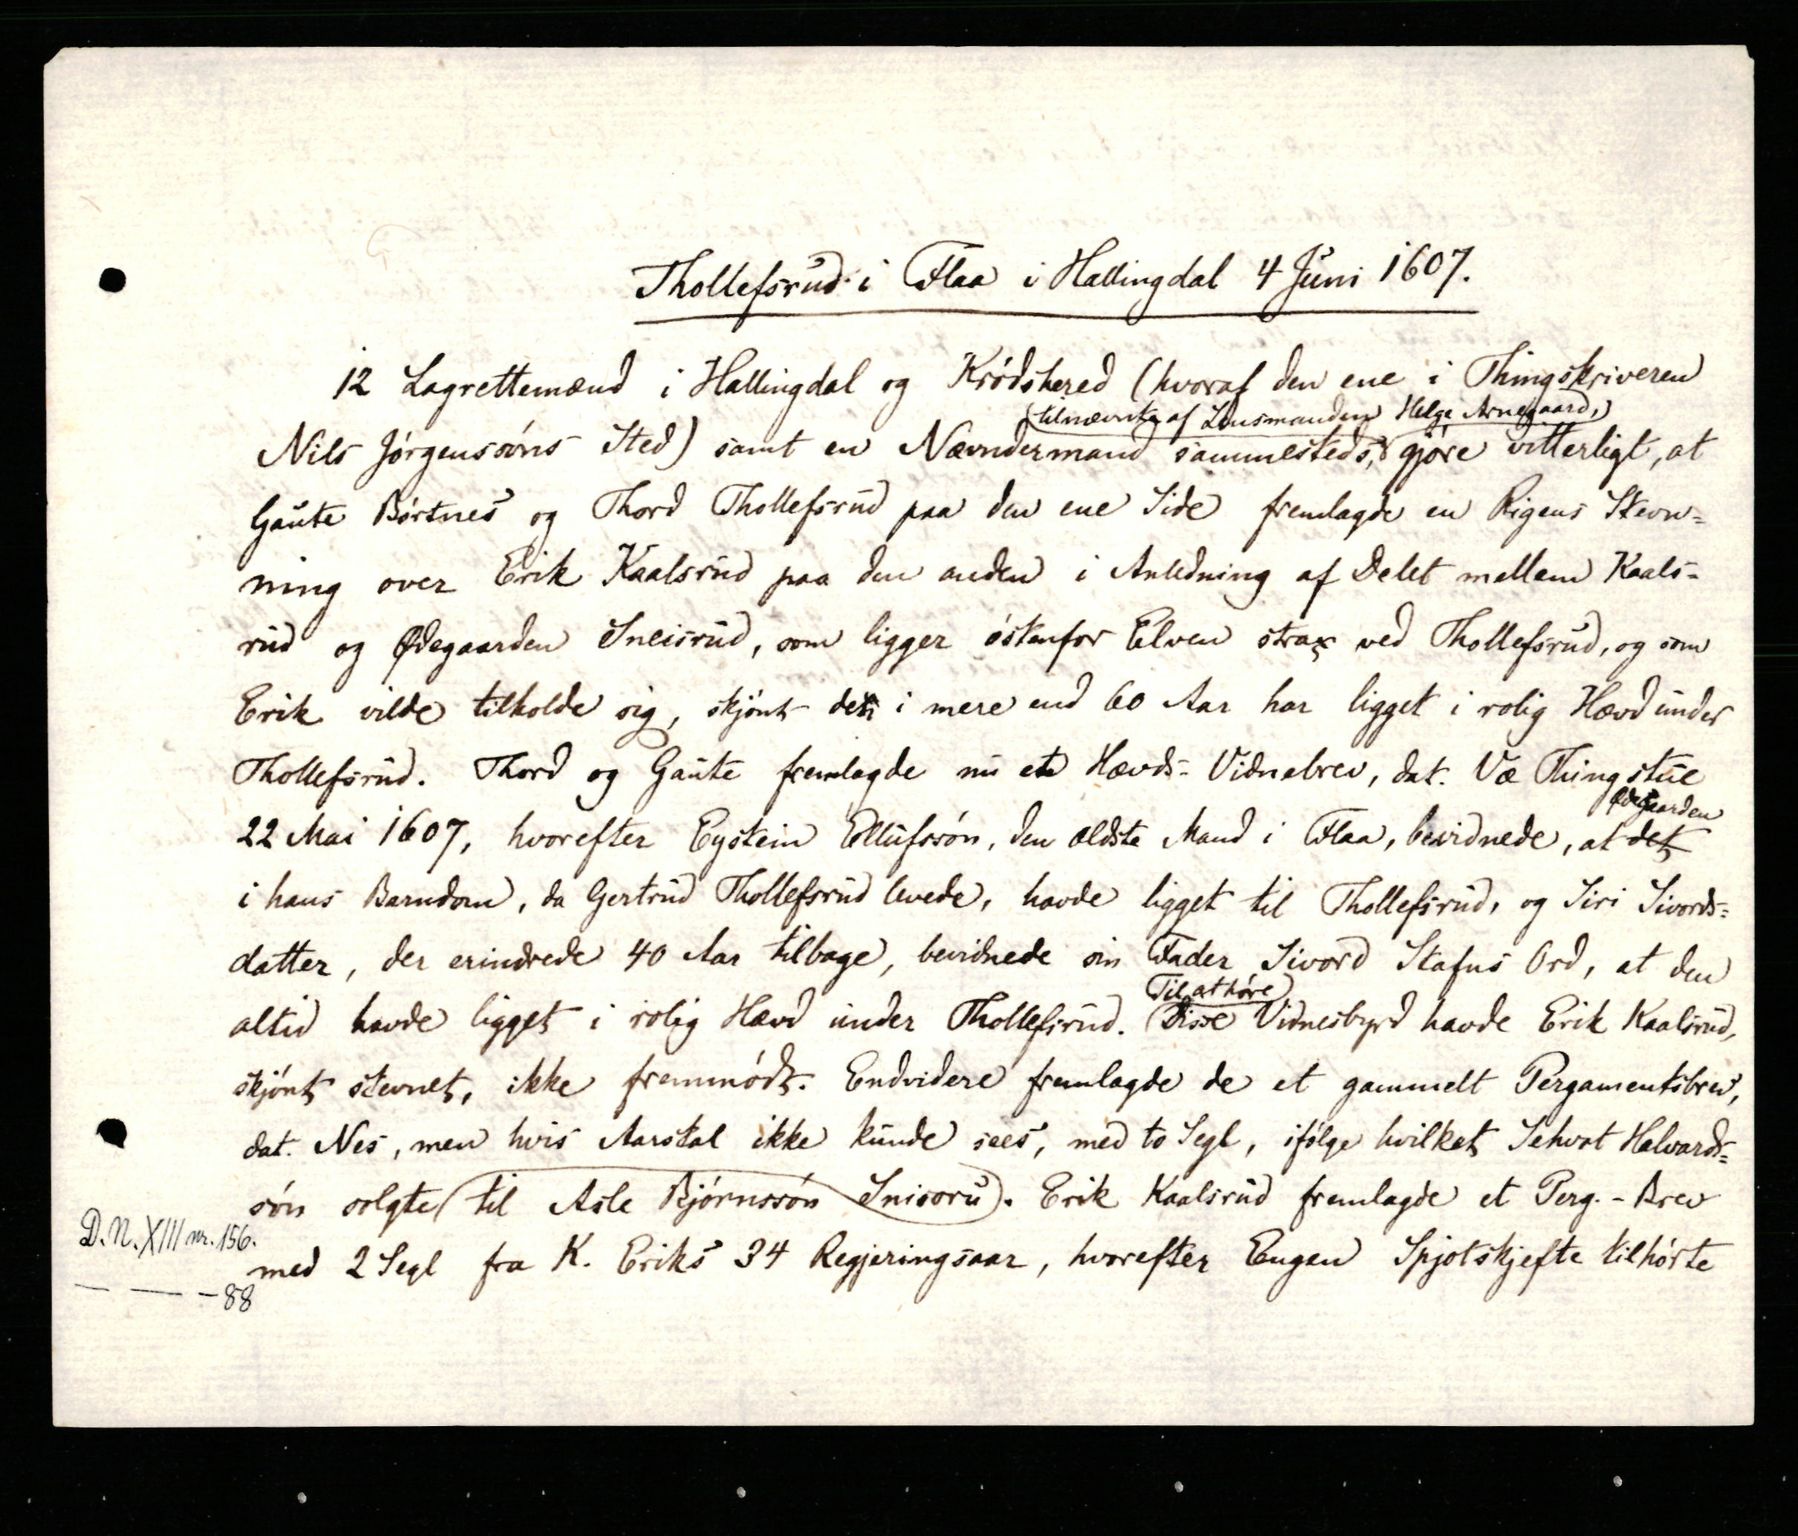 Thollefsrud i Flaa i Hallingdal 4 Juni 1607.
12 Lagrettemænd i Hallingdal og Krødshered (hvoraf den ene i Thingskriveren
(tilnævnte af Lensmanden Helge Arnegaard,)
Nils Jørgenssøns Sted) samt en Nævndermand sammesteds, gjøre vitterligt, at
Gaute Børtnes og Thord Thollefsrud paa den ene Side fremlagde en Rigens Stevn-
ning over Erik Kaalsrud paa den anden i Anledning af Delet mellem Kaals-
rud og Ødegaarden Sneisrud, som ligger østenfor Elven strax ved Thollefsrud, og som
Erik vilde tilholde sig, skjønt den i mere end 60 Aar har ligget i rolig Hævd under
Thollefsrud. Thord og Gaute fremlagde nu et Hævds-Vidnebrev, dat. Væ Thingstue
Ødegaarden
22 Mai 1607, hvorefter Eystein Ellufssøn, den ældste Mand i Flaa, bevidnede, at det
i hans Barndom, da Gertrud Thollefsrud levede, havde ligget til Thollefsrud, og Siri Sivords-
datter, der erindrede 40 Aar tilbage, bevidnede sin Fader Sivord Stafns Ord, at den
Til at høre
altid havde ligget i rolig Hævd under Thollefsrud. Disse Vidnesbyrd havde Erik Kaalsrud,
skjønt stevnet, ikke fremmødt. Endvidere fremlagde de et gammelt Pergamentsbrev,
dat. Nes, men hvis Aarstal ikke kunde sees, med to Segl, ifølge hvilket Sehvat Halvards-
søn solgte (til Asle Bjørnssøn Snisoru). Erik Kaalsrud fremlagde et Perg.-Brev
D.N. XIII nr. 156.
med 2 Segl fra K. Eriks 34 Regjeringsaar, hvorefter Engen Spjotskjefte tilhørte
— — - 88